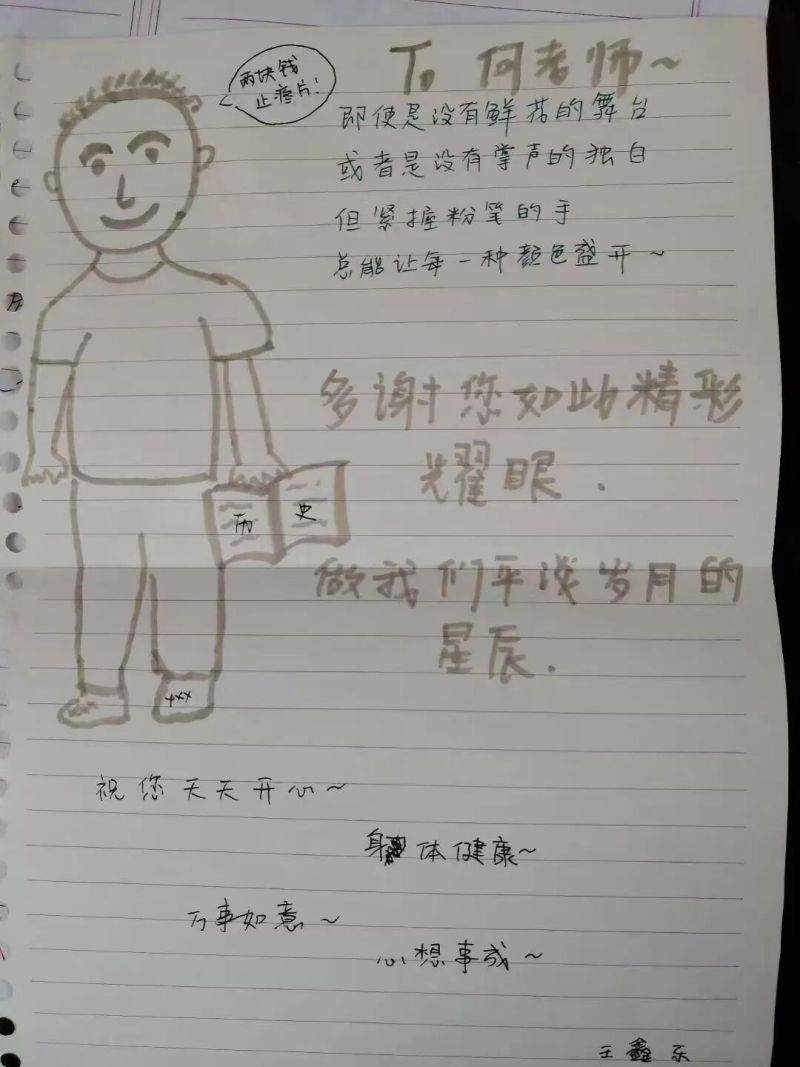 To 何老师~
两块钱
止疼片!
即使是没有鲜花的舞台
或者是没有掌声的独白
但紧握粉笔的手
总能让每一种颜色盛开~
多谢您如此精彩
耀眼.
历史
做我们平浅岁月的
星辰.
祝您天天开心~
身体健康~
万事如意~
心想事成~
王鑫乐